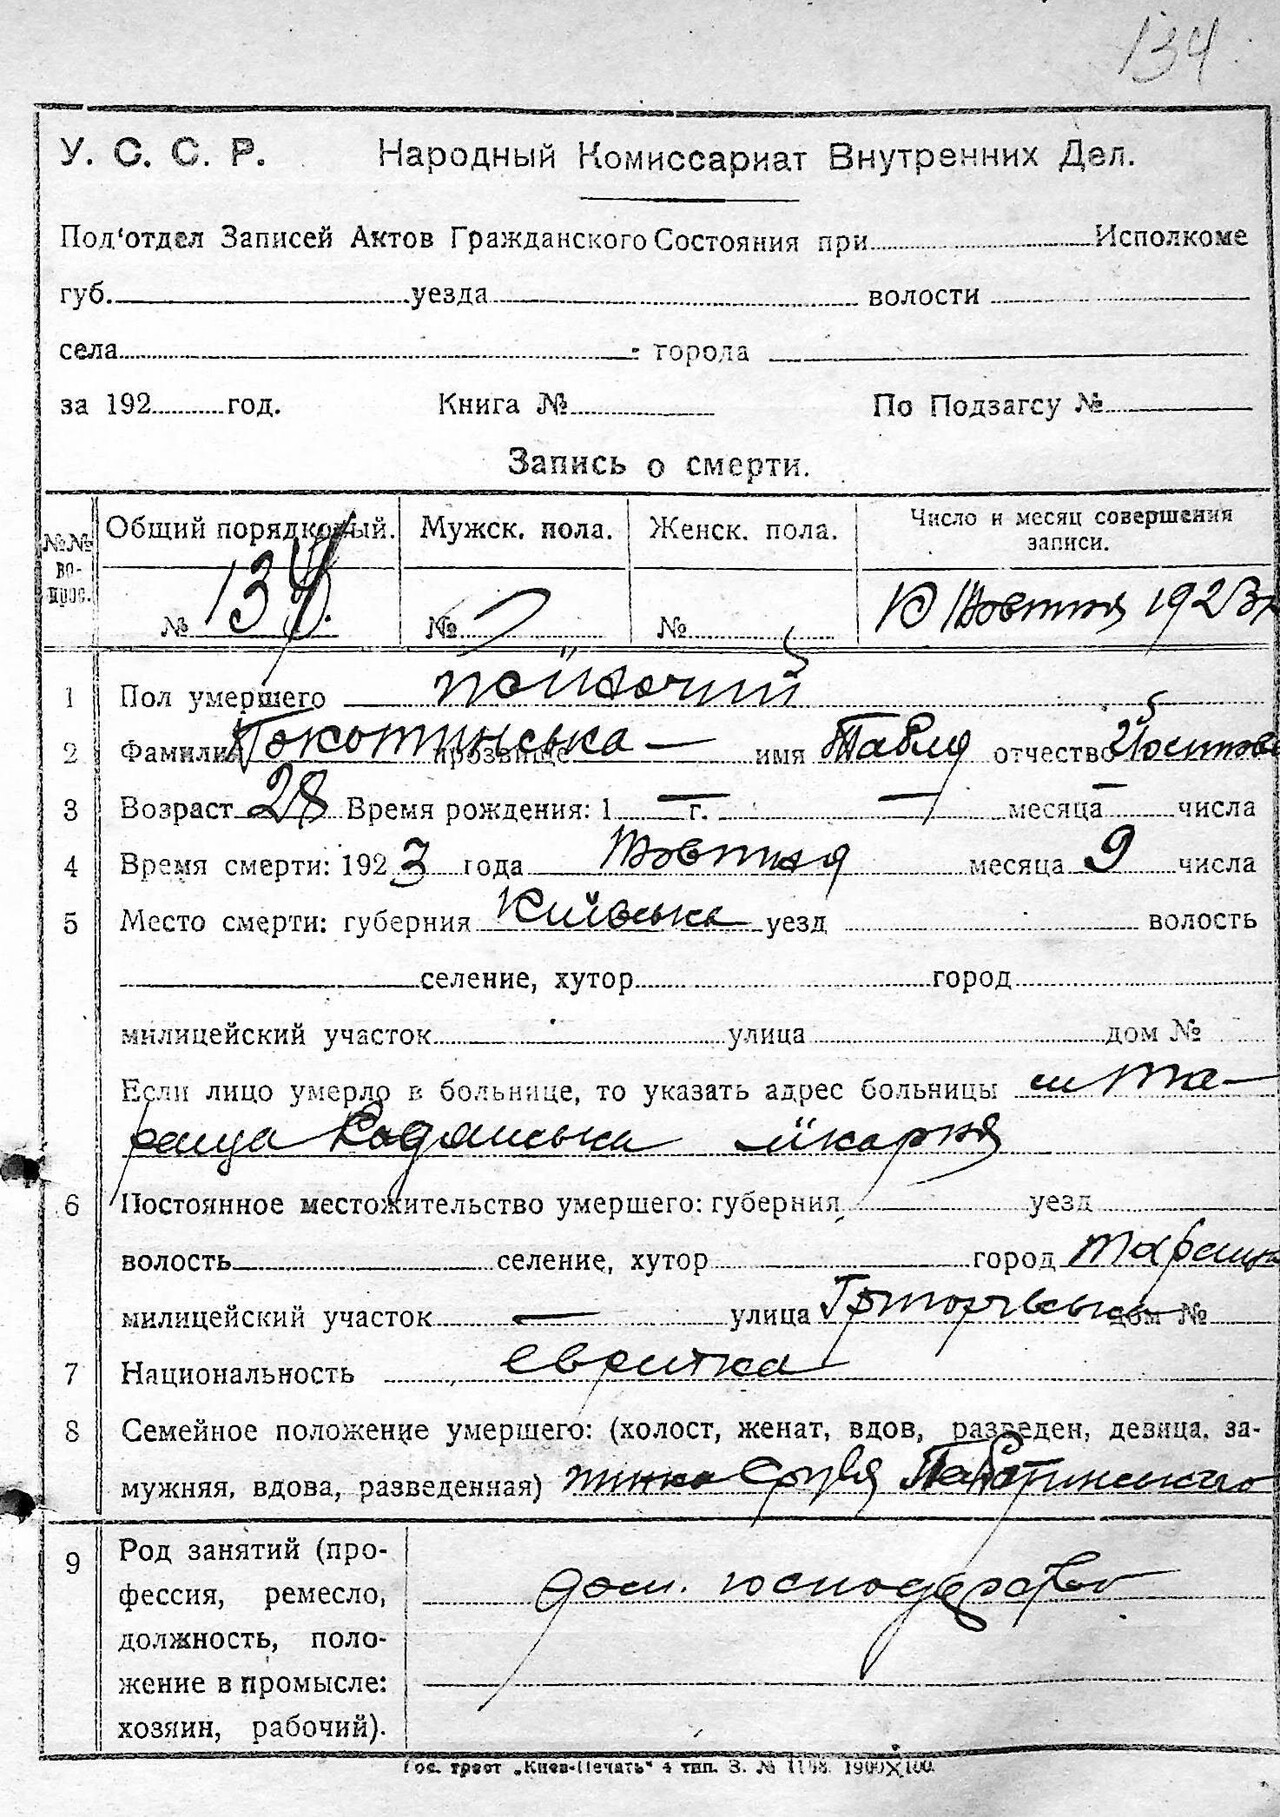 134
У. С. С. Р. Народный Комиссариат Внутренних Дел.
Под‘отдел Записей Актов Гражданского Состояния при Исполкоме
губ. уезда волости
села города
за 192 год. Книга № По Подзагсу №
Запись о смерти.
№№ во-прос. Общий порядковый. Мужск. пола. Женск. пола. Число и месяц совершения записи.
№ 134. № № 10 Жовтня 1923
1 Пол умершего жіночий
2 Фамилия прозвище — имя отчество
3 Возраст 28 Время рождения: 1 — г. — месяца — числа
4 Время смерти: 1923 года Жовтня месяца 9 числа
5 Место смерти: губерния Київська уезд волость
селение, хутор город
милицейский участок улица дом №
Если лицо умерло в больнице, то указать адрес больницы м Та-
раща Радянська лікарня
6 Постоянное местожительство умершего: губерния уезд
волость селение, хутор город Тараща
милицейский участок — улица дом №
7 Национальность еврейка
8 Семейное положение умершего: (холост, женат, вдов, разведен, девица, за-
мужняя, вдова, разведенная) жінка
9 Род занятий (про-
фессия, ремесло, дом. господарство
должность, поло-
жение в промысле:
хозяин, рабочий).
Гос. трест „Киев-Печать“ 4 тип. З. № 1198. 1900×100.